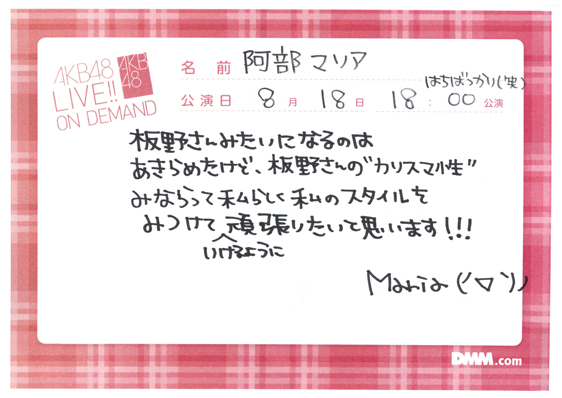 AKB48
LIVE!!
ON DEMAND
AKB
48
名前 阿部マリア
はちばっかり(笑)
公演日 8月18日 18:00公演
板野さんみたいになるのは
あきらめたけど、板野さんの"カリスマ性"
みならって私らしく私のスタイルを
みつけて頑張りたいて思います!!!
いけるように
Maria('▽')ノ
DMM.com